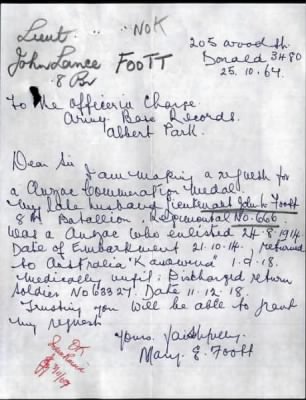 Lieut. NOK
John Lance FOOTT
8 Bn
205 Wood St.
Donald 3480
25.10.67.
To The Officer in Charge
Army Base Records.
Albert Park.
Dear Sir
I am making a request for
a Anzac Commemoration medal
my late husband Lieutenant John L. Foott
8th Battalion. Regimental No. 666.
was a Anzac who enlisted 24-8-1914
Date of Embarkment 21.10.14. returned
to Australia "Kanowna" 1.9.18.
medically unfit; Discharged return
Soldier No 63327. Date 11.12.18.
Trusting you will be able to grant
my request
Yours faithfully.
Mary E. Foott
OK